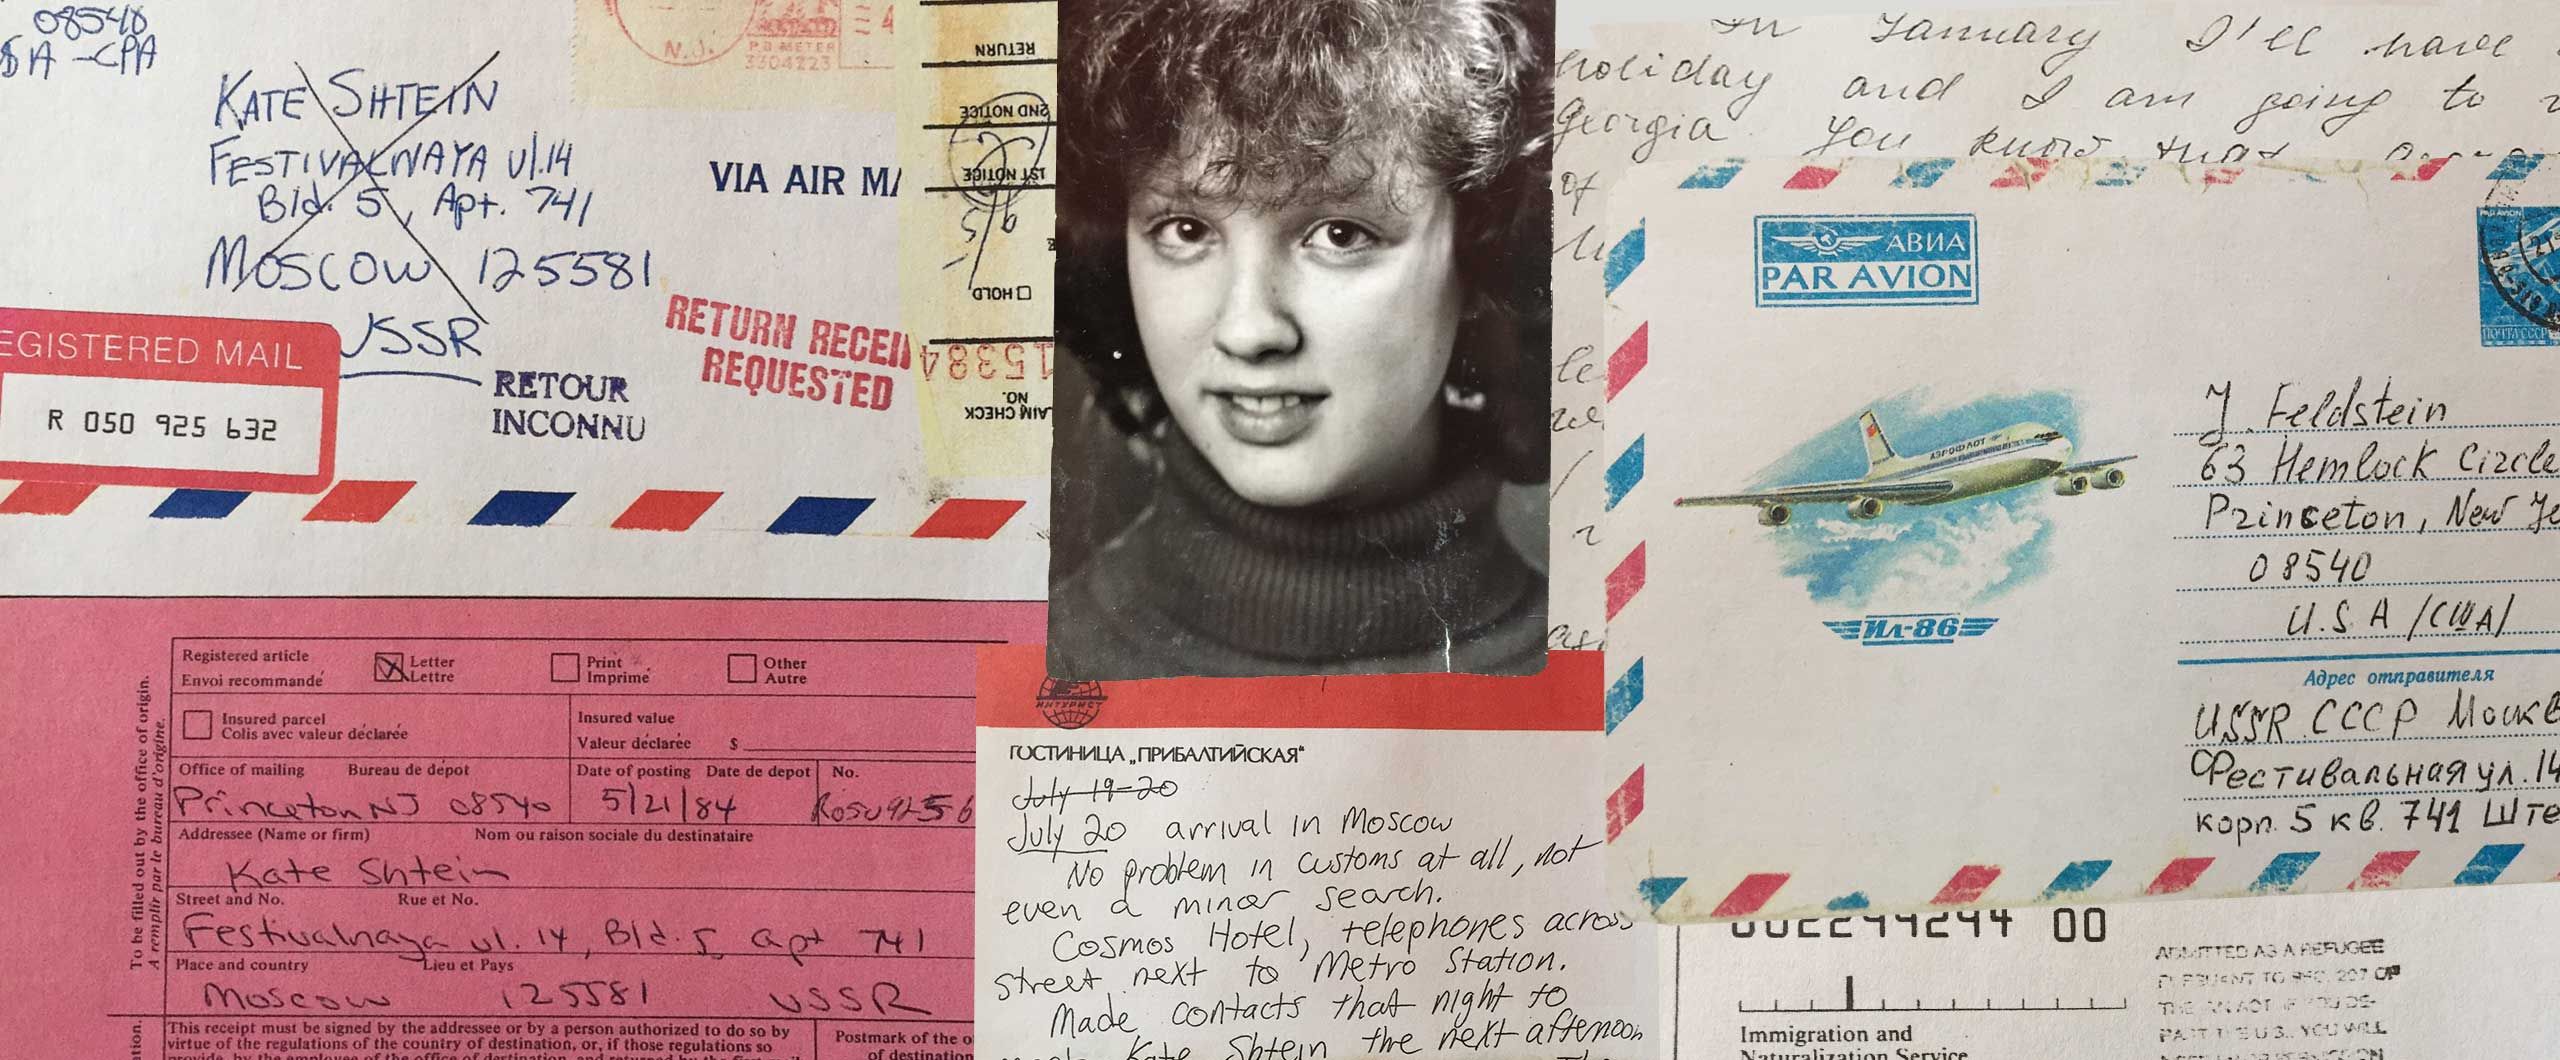 08540
$ IA - CPA
KATE SHTEIN
FESTIVALNAYA ul.14
Bld. 5, Apt. 741
MOSCOW 125581
USSR
N.J.
P.B. METER
3304223
VIA AIR MA
RETURN RECEI
REQUESTED
REGISTERED MAIL
R 050 925 632
RETOUR
INCONNU
RETURN
2ND NOTICE
1ST NOTICE
HOLD
15384
CLAIM CHECK
NO.
In January I'll have
holiday and I am going to
Georgia. You know that
of
АВИА
PAR AVION
PAR AVION
ПОЧТА СССР
АЭРОФЛОТ
Ил-86
J. Feldstein
63 Hemlock Circle
Princeton, New Je
08540
U.S.A /США/
Адрес отправителя
USSR СССР Москв
Фестивальная ул. 14
корп. 5 кв. 741 Ште
To be filled out by the office of origin.
A remplir par le bureau d'origine.
Registered article
Envoi recommandé
Letter
Lettre
Print
Imprimé
Other
Autre
Insured parcel
Colis avec valeur déclarée
Insured value
Valeur déclarée $
Office of mailing Bureau de dépôt
Princeton NJ 08540
Date of posting Date de depot
5/21/84
No.
Addressee (Name or firm) Nom ou raison sociale du destinataire
Kate Shtein
Street and No. Rue et No.
Festivalnaya ul. 14, Bld. 5, apt 741
Place and country Lieu et Pays
Moscow 125581 USSR
This receipt must be signed by the addressee or by a person authorized to do so by
virtue of the regulations of the country of destination, or, if those regulations so
Postmark of the o
of destination
ИНТУРИСТ
ГОСТИНИЦА „ПРИБАЛТИЙСКАЯ“
July 19-20
July 20 arrival in Moscow
No problem in customs at all, not
even a minor search.
Cosmos Hotel, telephones across
street next to Metro Station.
Made contacts that night to
Kate Shtein the next afternoon
002299294 00
Immigration and
Naturalization Service
ADMITTED AS A REFUGEE
PURSUANT TO SEC. 207 OF
THE INA ACT. IF YOU DE-
PART THE U.S., YOU WILL